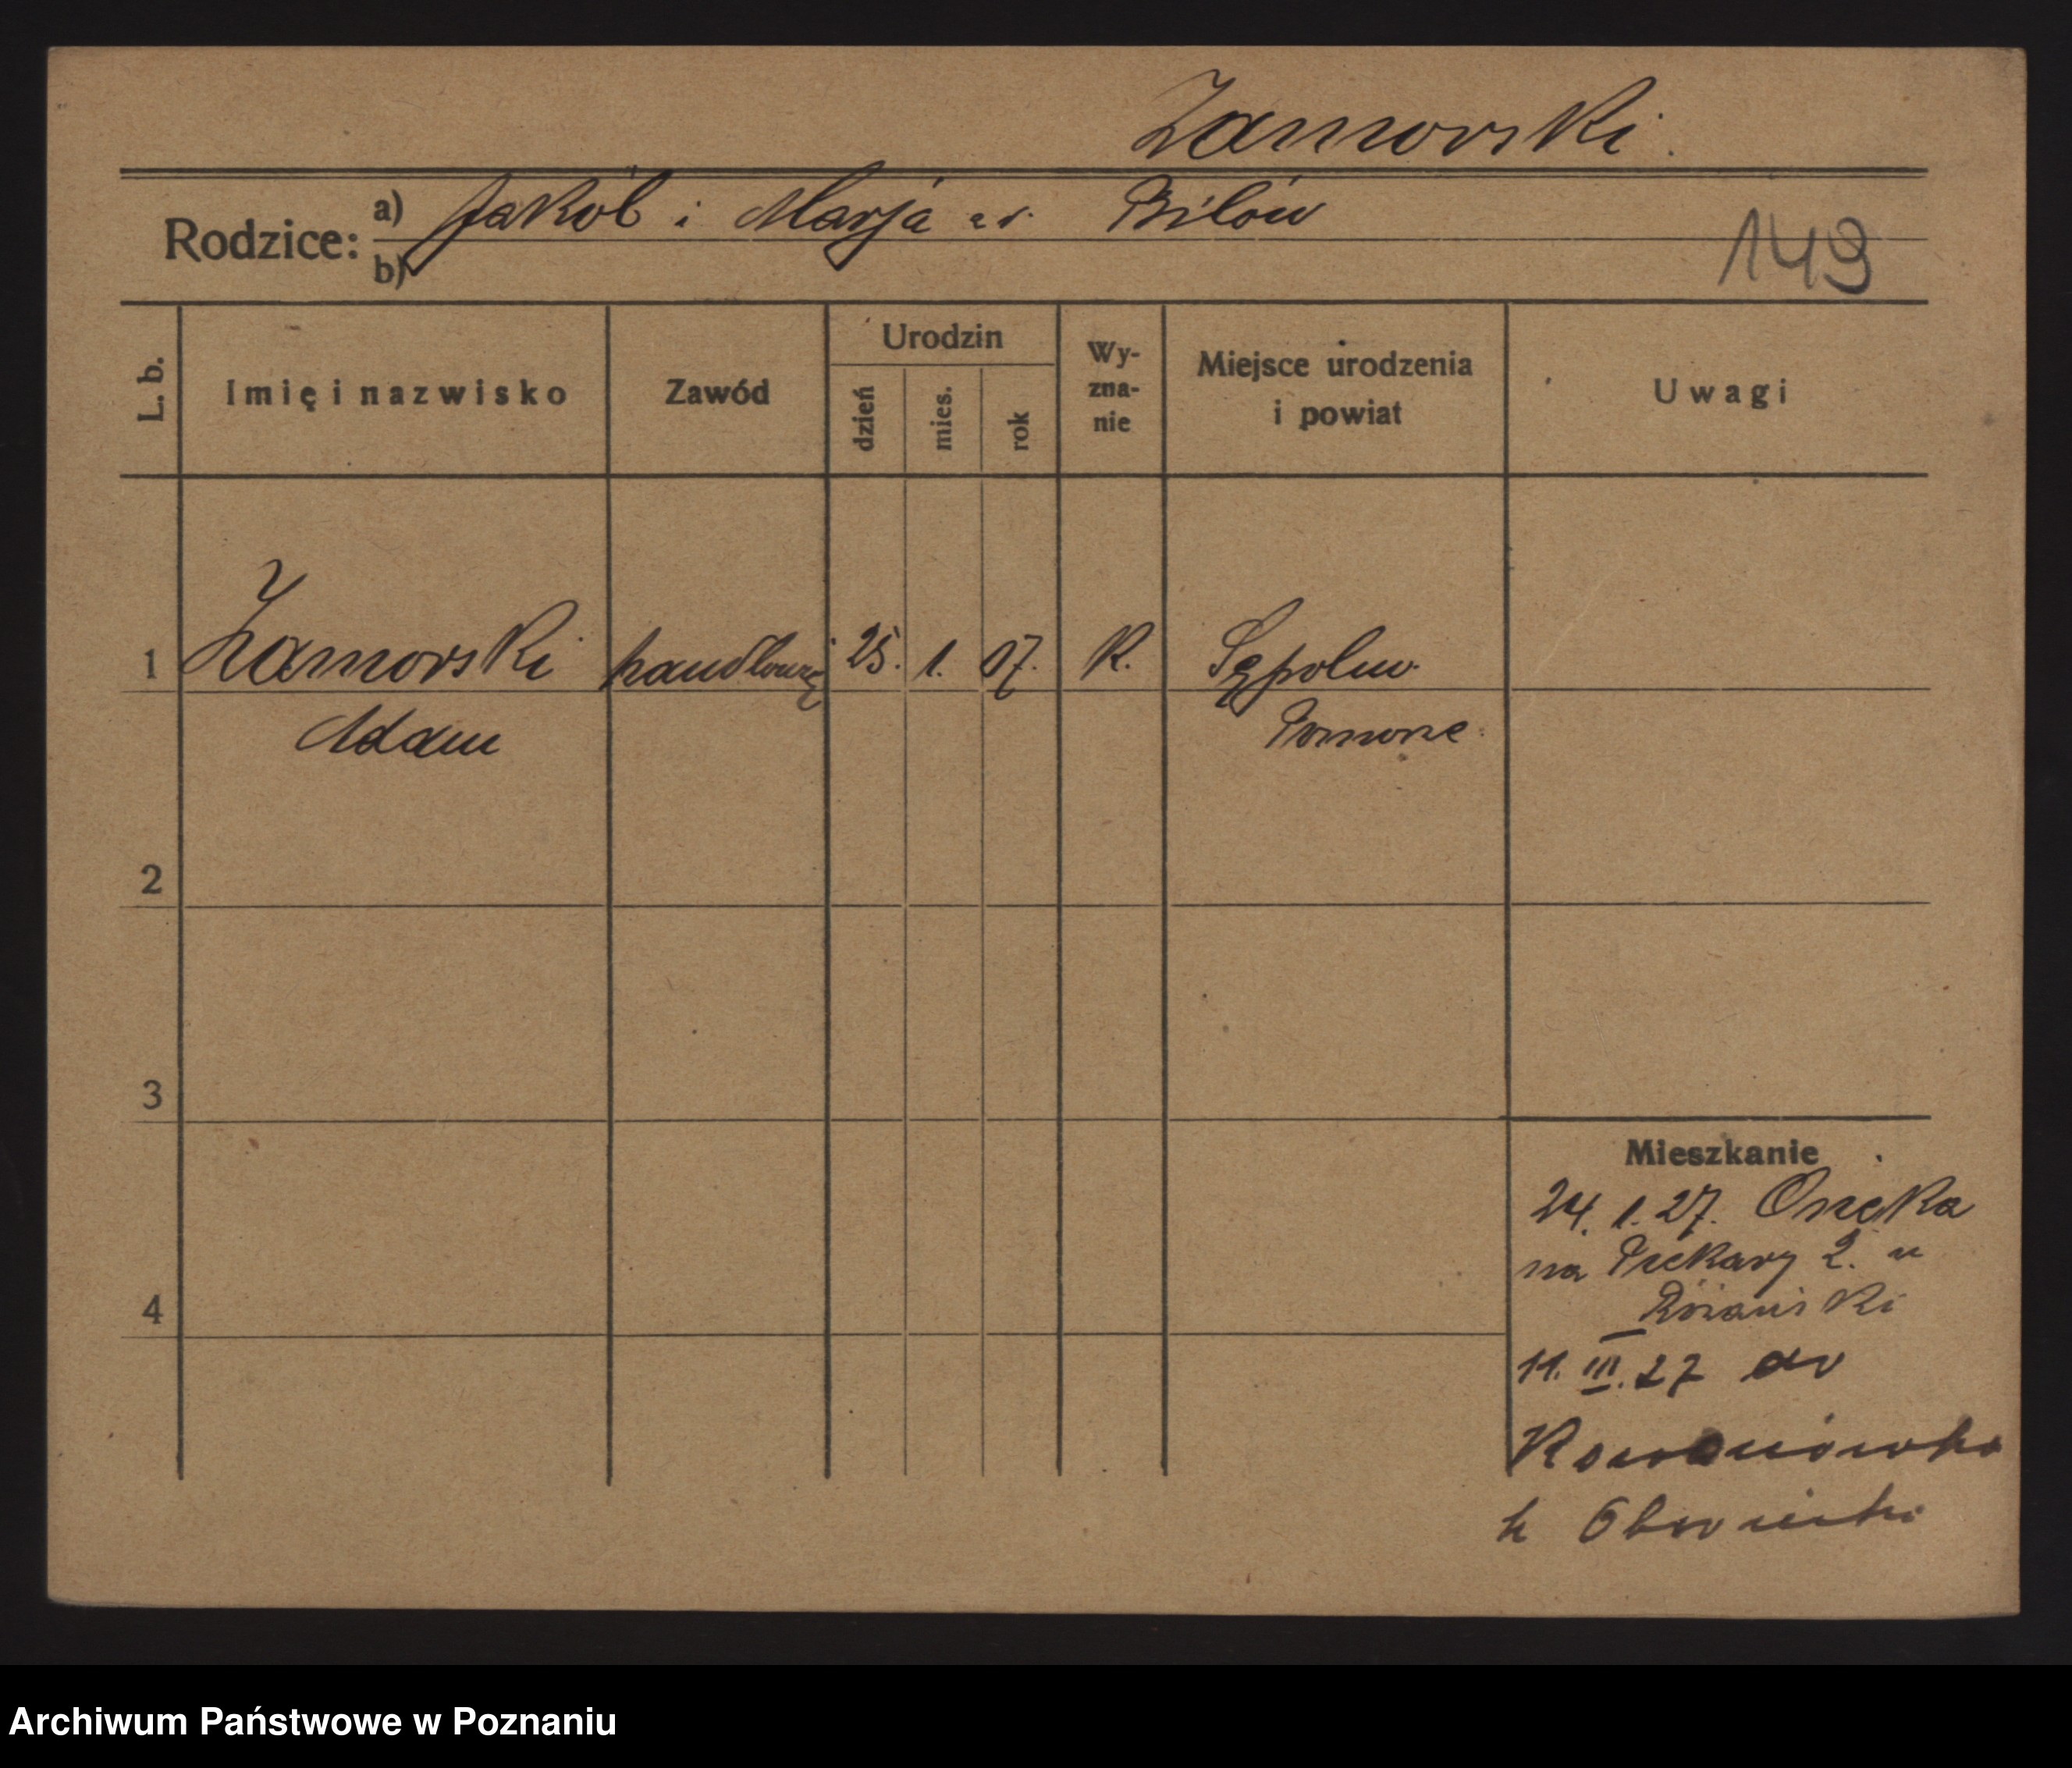 Zamorski.
Rodzice: a) Jakób i Marja z d. Bilów
b)
149
L. b.
Imię i nazwisko
Zawód
Urodzin
dzień
mies.
rok
Wy-
zna-
nie
Miejsce urodzenia
i powiat
Uwagi
1 Zamorski handlowiec 25. 1. 07. K. Sępolno
Adam Pomorze
2
3
4
Mieszkanie
24. 1. 27.
na Piekary 2. u
Różański
11. III. 27 do
Kowanówka
k Obornik
Archiwum Państwowe w Poznaniu